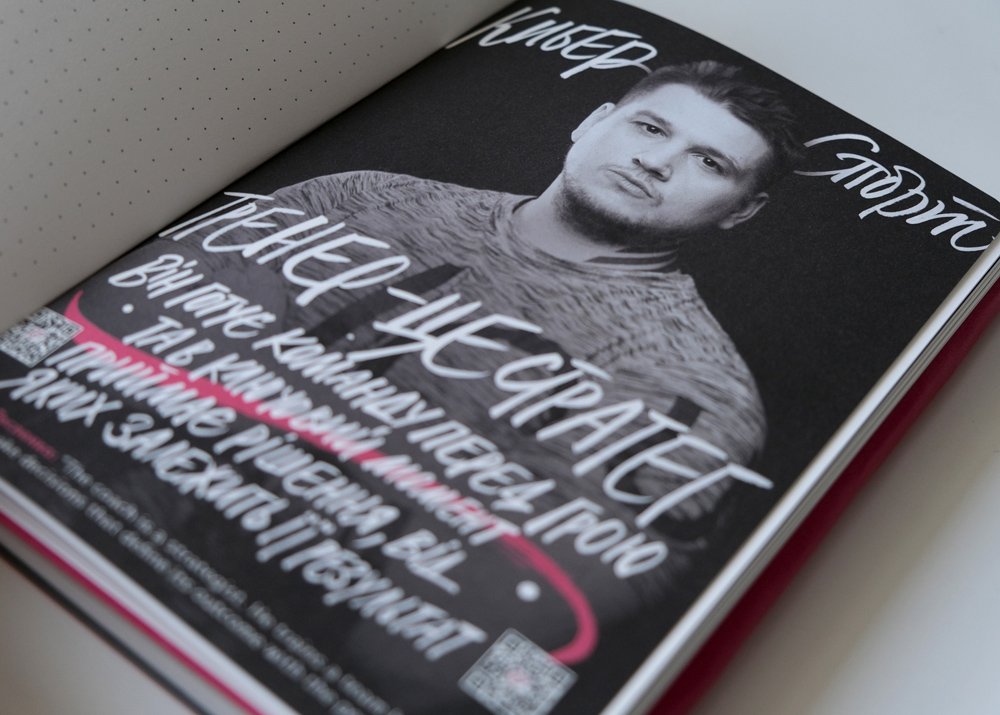 Кибер
Спорт
ТРЕНЕР – ЦЕ СТРАТЕГ
ВІН ГОТУЄ КОМАНДУ ПЕРЕД ГРОЮ
ТА В КЛЮЧОВИЙ МОМЕНТ
ПРИЙМАЄ РІШЕННЯ, ВІД
ЯКИХ ЗАЛЕЖИТЬ ЇЇ РЕЗУЛЬТАТ
"The coach is a strategist. He trains a team
decisions that define its outcome with the